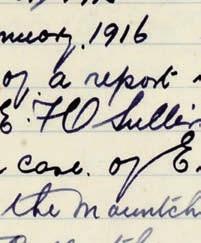 nuary. 1916
of a report
E. F O Sulli
case of E.
the mountch